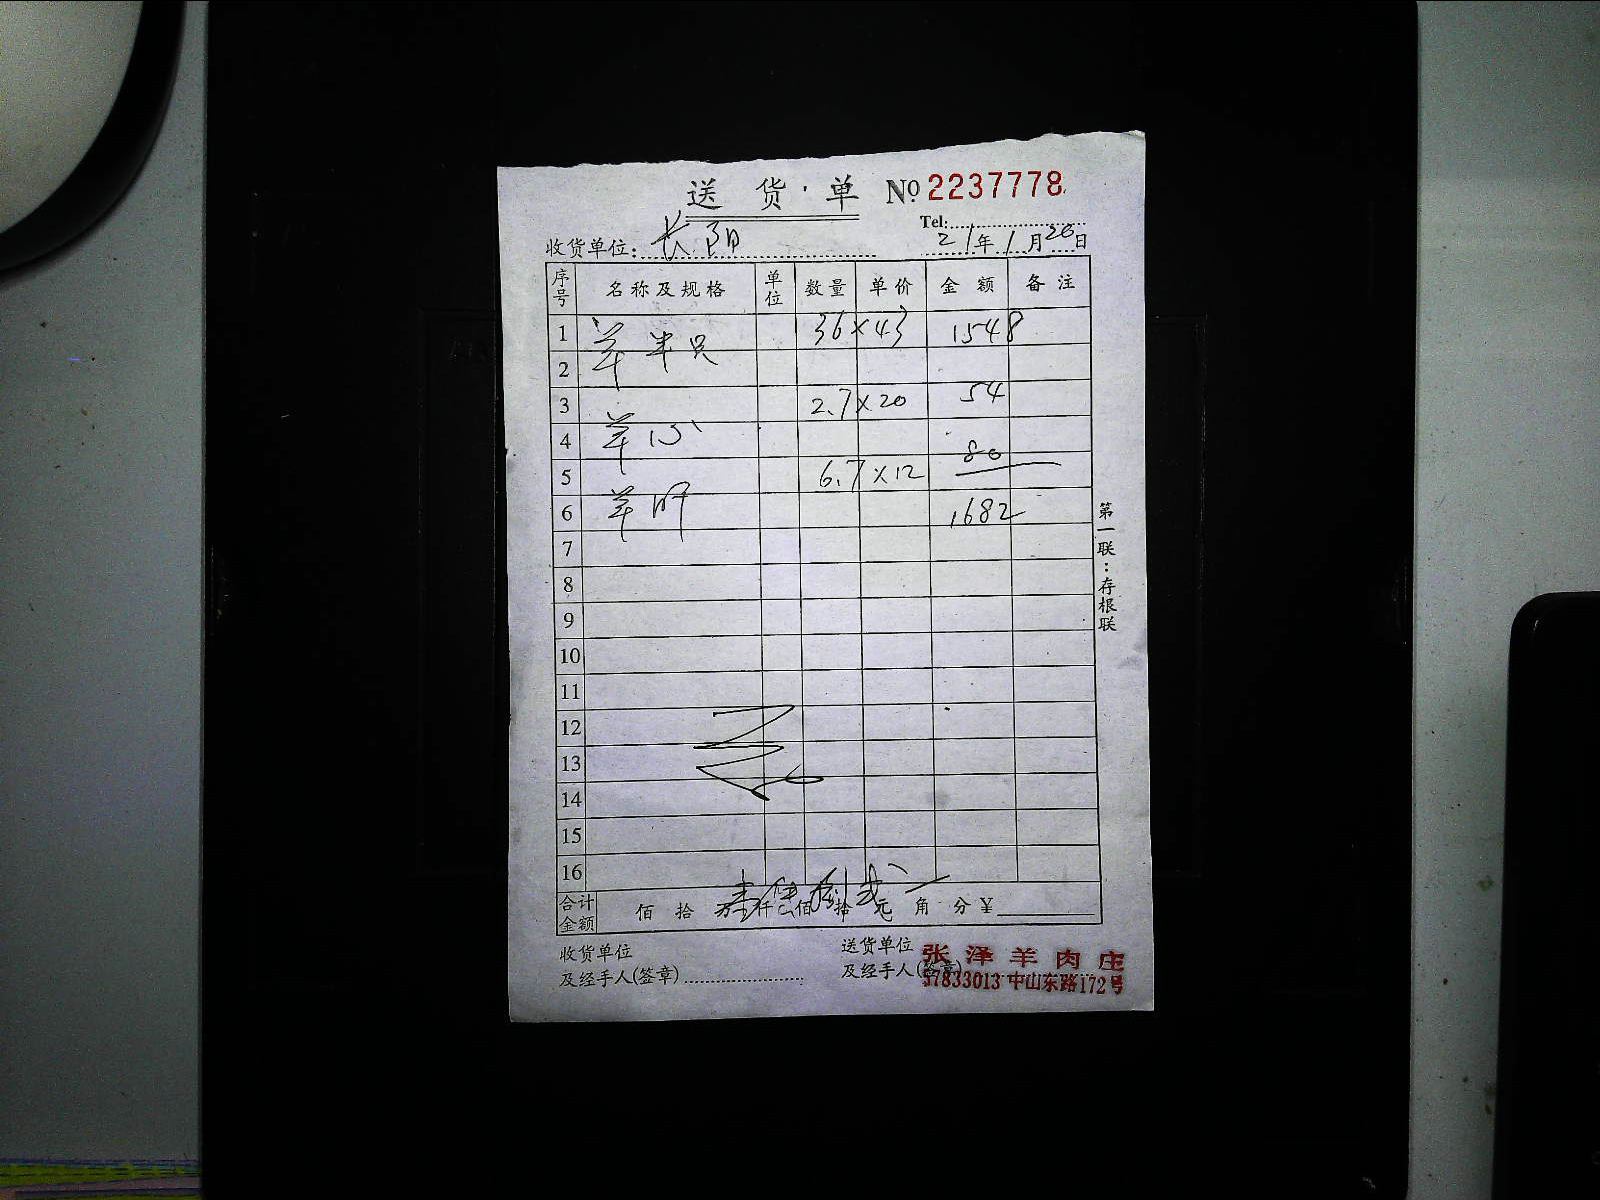 送货单 № 2237778
Tel:
收货单位: 长阳 21年1月26日
序号 名称及规格 单位 数量 单价 金额 备注
1 羊半只 36×43 1548
2
3 2.7×20 54
4 羊心
5 6.7×12 80
6 羊肝 1682
7
8
9
10
11
12
13
14
15
16
合计金额 佰 拾 万 仟 佰 拾 元 角 分 ¥
收货单位 送货单位
及经手人(签章) 及经手人(签章)
张泽羊肉庄
57833013 中山东路172号
第一联:存根联